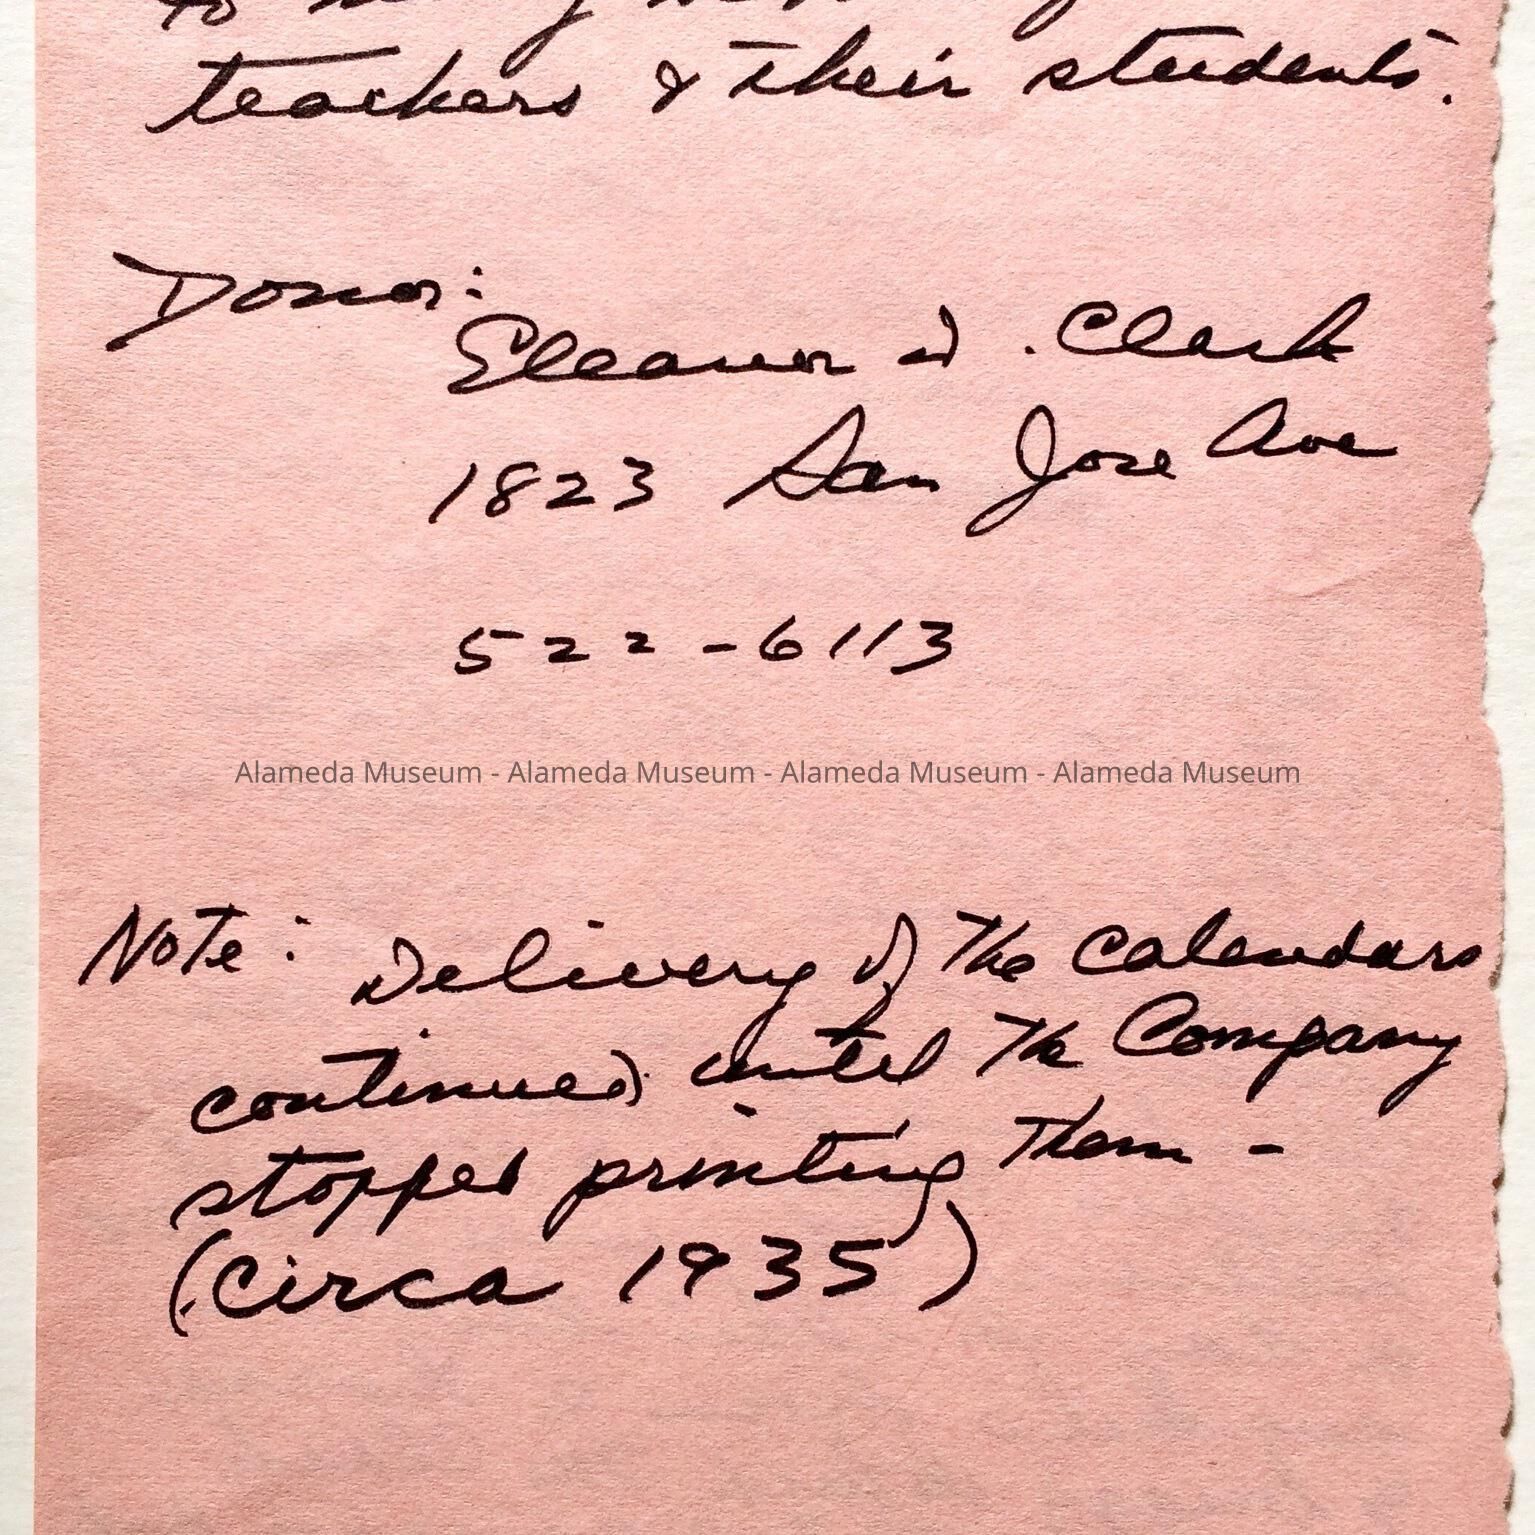 to
teachers & their students.
Donor:
Eleanor D. Clark
1823 San Jose Ave
522-6113
Alameda Museum - Alameda Museum - Alameda Museum - Alameda Museum
Note: Delivery of the calendars
continued until the Company
stopped printing them -
(circa 1935)